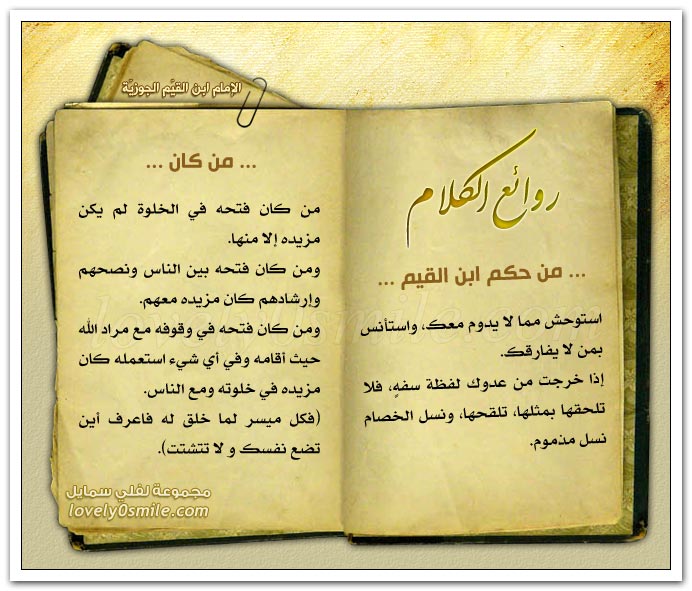 الإمام ابن القيَّم الجوزيَّة
روائع الكلام
... من حكم ابن القيم ...
استوحش مما لا يدوم معك، واستأنس
بمن لا يفارقك.
إذا خرجت من عدوك لفظة سفهٍ، فلا
تلحقها بمثلها، تلقحها، ونسل الخصام
نسل مذموم.
... من كان ...
من كان فتحه في الخلوة لم يكن
مزيده إلا منها.
ومن كان فتحه بين الناس ونصحهم
وإرشادهم كان مزيده معهم.
ومن كان فتحه في وقوفه مع مراد الله
حيث أقامه وفي أي شيء استعمله كان
مزيده في خلوته ومع الناس.
(فكل ميسر لما خلق له فاعرف أين
تضع نفسك و لا تتشتت).
مجموعة لفلي سمايل
lovely0smile.com